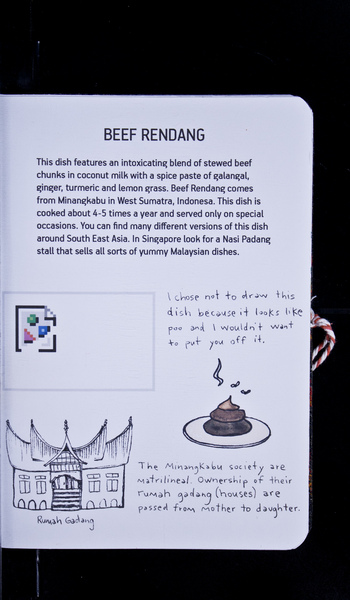 BEEF RENDANG
This dish features an intoxicating blend of stewed beef
chunks in coconut milk with a spice paste of galangal,
ginger, turmeric and lemon grass. Beef Rendang comes
from Minangkabu in West Sumatra, Indonesa. This dish is
cooked about 4-5 times a year and served only on special
occasions. You can find many different versions of this dish
around South East Asia. In Singapore look for a Nasi Padang
stall that sells all sorts of yummy Malaysian dishes.
I chose not to draw this
dish because it looks like
poo and I wouldn't want
to put you off it.
The Minangkabu society are
matrilineal. Ownership of their
rumah gadang (houses) are
passed from mother to daughter.
Rumah Gadang